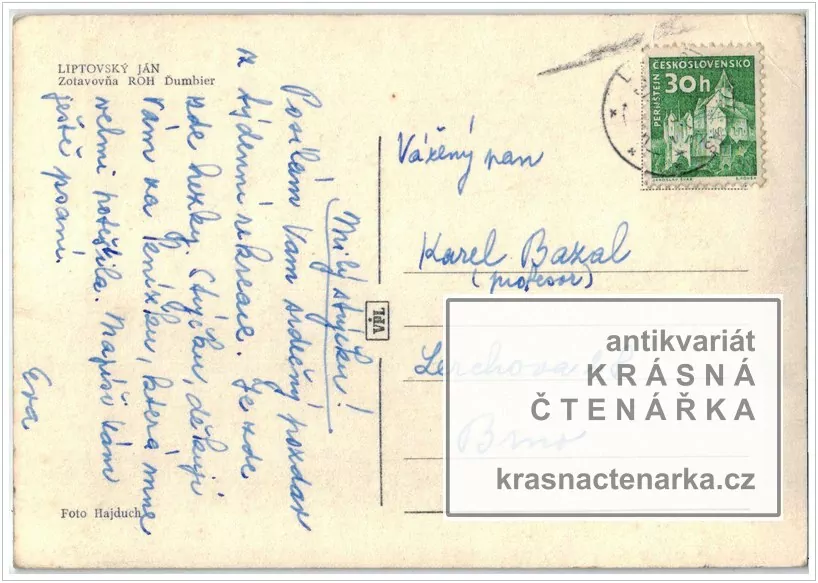 LIPTOVSKÝ JÁN
Zotavovňa ROH Ďumbier
Milý strýčku!
Posílám Vám srdečný pozdrav
z týdenní rekreace. Je zde
zde hezky. Strýčku, děkuji
Vám za knížku, která mne
velmi potěšila. Napíši Vám
ještě psaní.
Eva
Foto Hajduch
VPL
ČESKOSLOVENSKO
30h
PERNŠTEJN
Vážený pan
Karel Bazal
(profesor)
Lerchova
Brno
antikvariát
KRÁSNÁ
ČTENÁŘKA
krasnactenarka.cz